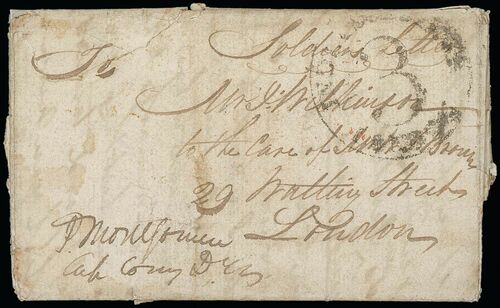 Soldiers Letter
To
Mr J. Wilkinson
to the Care of
29 Watling Street
London
Montgomerie
Comg
3